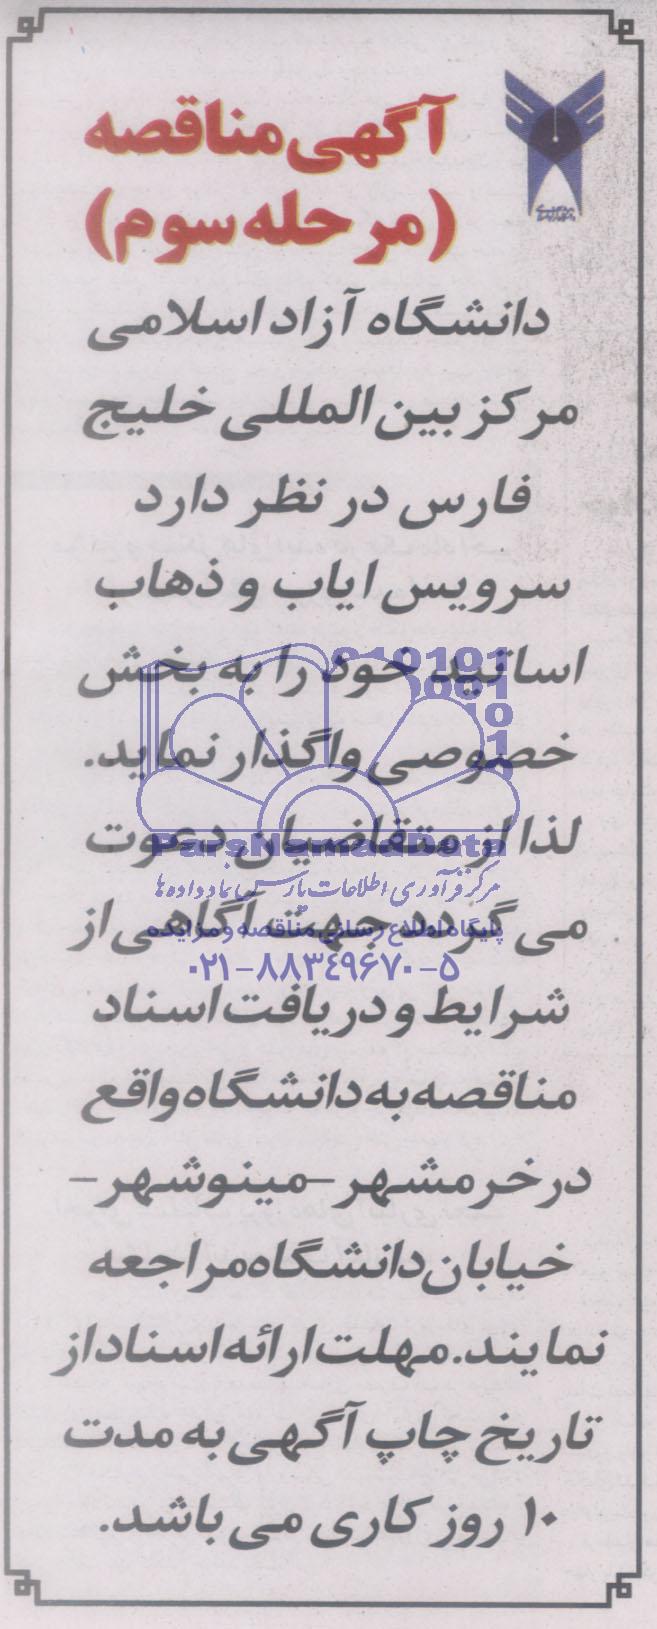 آگهی مناقصه
(مرحله سوم)
دانشگاه آزاد اسلامی
مرکز بین المللی خلیج
فارس در نظر دارد
سرویس ایاب و ذهاب
اساتید خود را به بخش
خصوصی واگذار نماید.
لذا از متقاضیان دعوت
می گردد جهت آگاهی از
شرایط و دریافت اسناد
مناقصه به دانشگاه واقع
در خرمشهر - مینوشهر -
خیابان دانشگاه مراجعه
نمایند. مهلت ارائه اسناد از
تاریخ چاپ آگهی به مدت
۱۰ روز کاری می باشد.
010101
0001
10
1
ParsNamadData
مرکز فرآوری اطلاعات پارس نماد داده ها
پایگاه اطلاع رسانی مناقصه و مزایده
۰۲۱-۸۸۳۴۹۶۷۰-۵